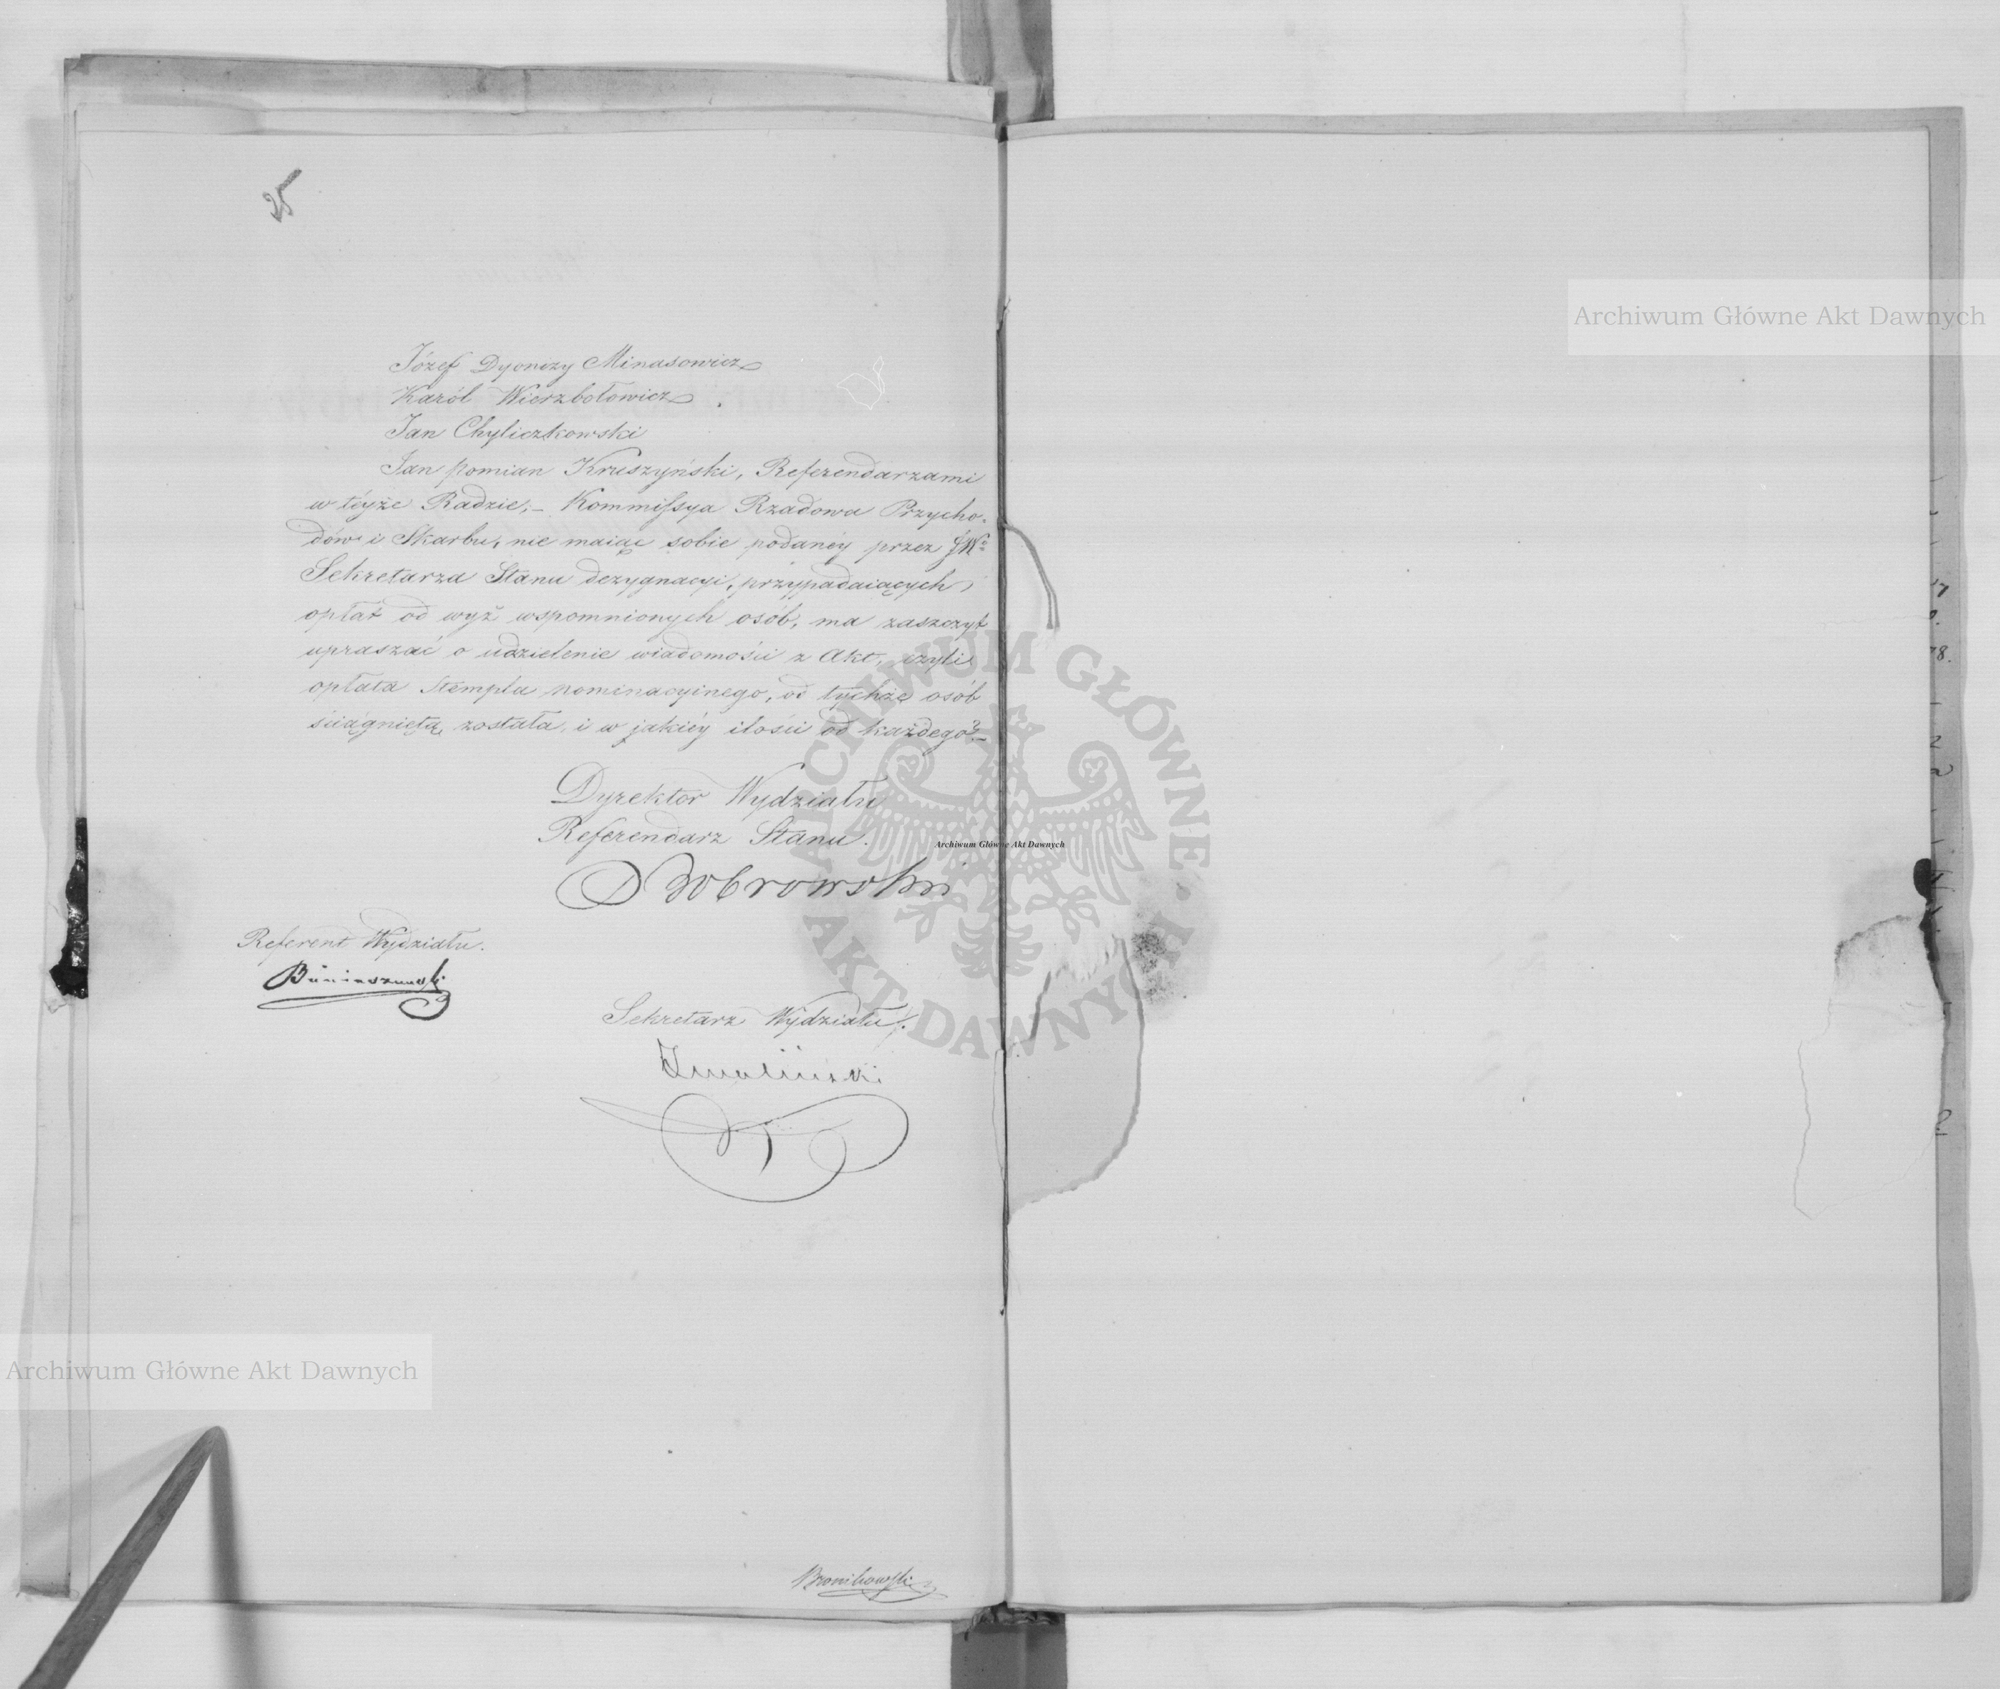 25
Józef Dyonizy Minasowicz
Karól Wierzbołowicz
Jan Chyliczkowski
Jan pomian Kruszyński, Referendarzami
w téyże Radzie; – Kommissya Rządowa Przycho-
dów i Skarbu, nie maiąc sobie podanéy przez JWo
Sekretarza Stanu dezygnacyi, przypadaiących
opłat od wyż wspomnionych osób, ma zaszczyt
upraszać o udzielenie wiadomości z Akt, czyli
opłata Stempla nominacyinego, od tychże osób
ściągniętą została, i w jakiéy ilości od każdego? –
Dyrektor Wydziału
Referendarz Stanu.
Dobrowolski
Referent Wydziału.
Sekretarz Wydziału.
Bronikowski
Archiwum Główne Akt Dawnych
Archiwum Główne Akt Dawnych
Archiwum Główne Akt Dawnych
ARCHIWUM GŁÓWNE AKT DAWNYCH